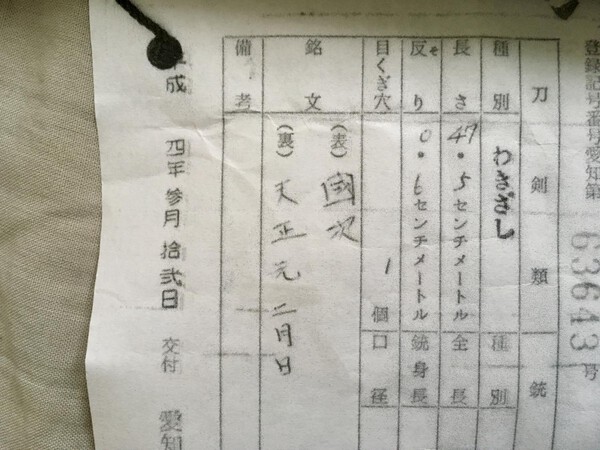 登録記号番号愛知第 63643 号
刀剣類 銃
種別 わきざし 種別
長さ 47.5センチメートル 全長
反り そ 0.6センチメートル 銃身長
目くぎ穴 1個 口径
銘文 (表) 國次
(裏) 天正元二月日
備考
平成四年参月拾弐日 交付 愛知